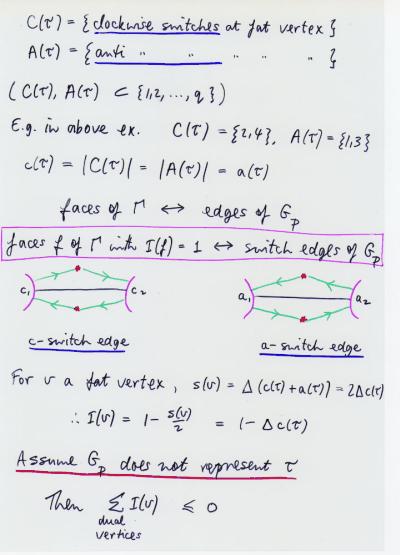 C(τ) = { clockwise switches at fat vertex }
A(τ) = { anti " " " " " }
( C(τ), A(τ) ⊂ {1,2, ..., q} )
E.g. in above ex. C(τ) = {2,4}, A(τ) = {1,3}
c(τ) = |C(τ)| = |A(τ)| = a(τ)
faces of Γ ↔ edges of G_P
faces f of Γ with I(f) = 1 ↔ switch edges of G_P
c₁ c₂ a₁ a₂
c-switch edge a-switch edge
For v a fat vertex, s(v) = Δ (c(τ) + a(τ)) = 2Δc(τ)
∴ I(v) = 1 - s(v)/2 = 1 - Δc(τ)
Assume G_P does not represent τ
Then Σ I(v) ≤ 0
dual
vertices